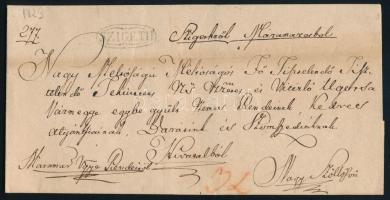 1823
277.
SZIGETH
Szigethről Maramarosbol
Nagy Méltóságu Méltóságos Fő Tisztelendő Tiszt
elendő Tekintetes Nzs Nemes és Vitézlő Ugotsa
Vármegye egybe gyült Rendeinek Kedves
Atyánkfiainak, Baraink és Szomszédinknak
Hivatalból
Maramar Vgye Rendeitől
Nagy Szöllősön